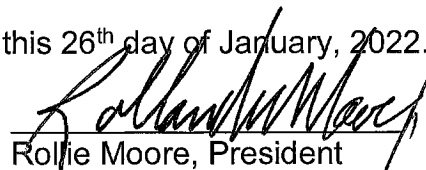 this 26th day of January, 2022.
Rollie Moore, President